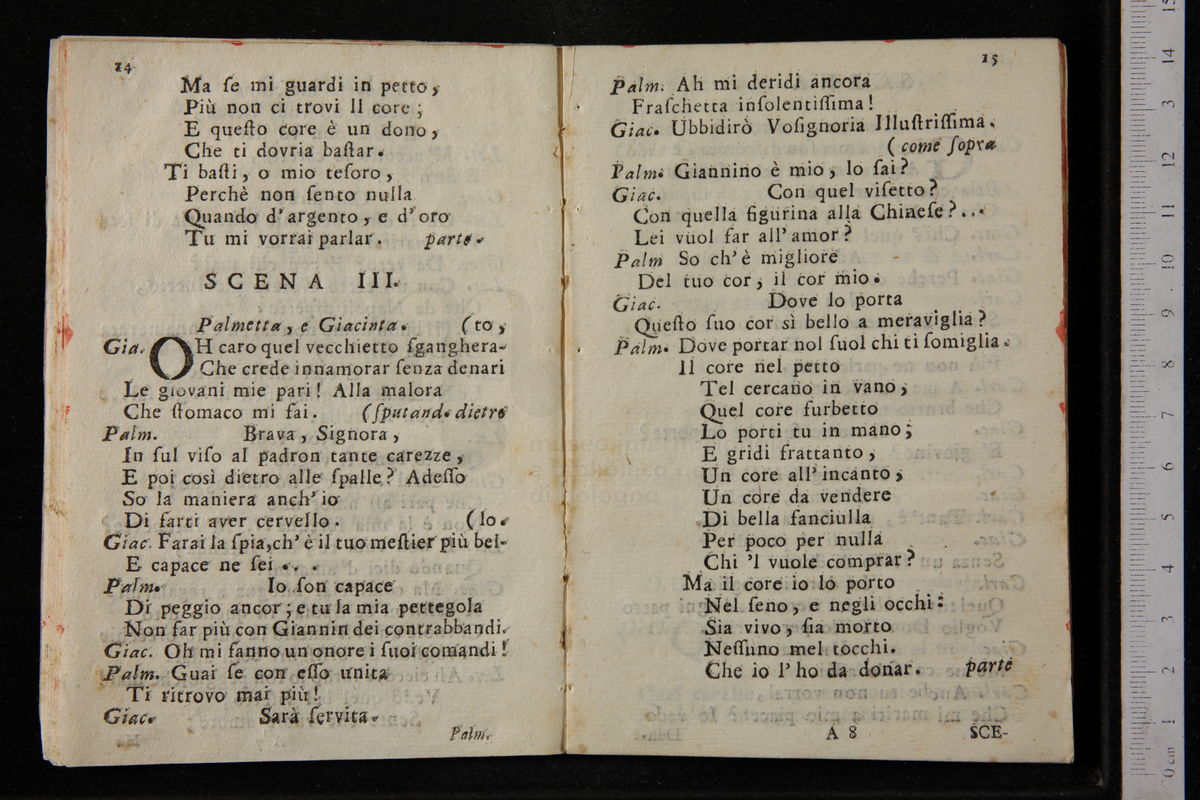 14
Ma ſe mi guardi in petto,
Più non ci trovi Il core;
E queſto core è un dono,
Che ti dovria baſtar.
Ti baſti, o mio teſoro,
Perchè non ſento nulla
Quando d'argento, e d'oro
Tu mi vorrai parlar. parte.
SCENA III.
Palmetta, e Giacinta. (to,
Gia. OH caro quel vecchietto ſganghera-
Che crede innamorar ſenza denari
Le giovani mie pari! Alla malora
Che ſtomaco mi fai. (ſputand. dietro
Palm. Brava, Signora,
In ſul viſo al padron tante carezze,
E poi così dietro alle ſpalle? Adeſſo
So la maniera anch'io
Di farti aver cervello. (lo.
Giac. Farai la ſpia, ch'è il tuo meſtier più bel-
E capace ne ſei . . .
Palm. Io ſon capace
Di peggio ancor; e tu la mia pettegola
Non far più con Giannin dei contrabbandi.
Giac. Oh mi fanno un onore i ſuoi comandi!
Palm. Guai ſe con eſſo unita
Ti ritrovo mai più!
Giac. Sarà ſervita.
Palm.
15
Palm. Ah mi deridi ancora
Fraſchetta inſolentiſſima!
Giac. Ubbidirò Voſignoria Illuſtriſſima.
(come ſopra
Palm. Giannino è mio, lo ſai?
Giac. Con quel viſetto?
Con quella figurina alla Chineſe?...
Lei vuol far all'amor?
Palm So ch'è migliore
Del tuo cor, il cor mio.
Giac. Dove lo porta
Queſto ſuo cor sì bello a meraviglia?
Palm. Dove portar nol ſuol chi ti ſomiglia.
Il core nel petto
Tel cercano in vano,
Quel core furbetto
Lo porti tu in mano;
E gridi frattanto,
Un core all'incanto,
Un core da vendere
Di bella fanciulla
Per poco per nulla
Chi 'l vuole comprar?
Ma il core io lo porto
Nel ſeno, e negli occhi:
Sia vivo, ſia morto
Neſſuno mel tocchi.
Che io l'ho da donar. parte
A 8 SCE-